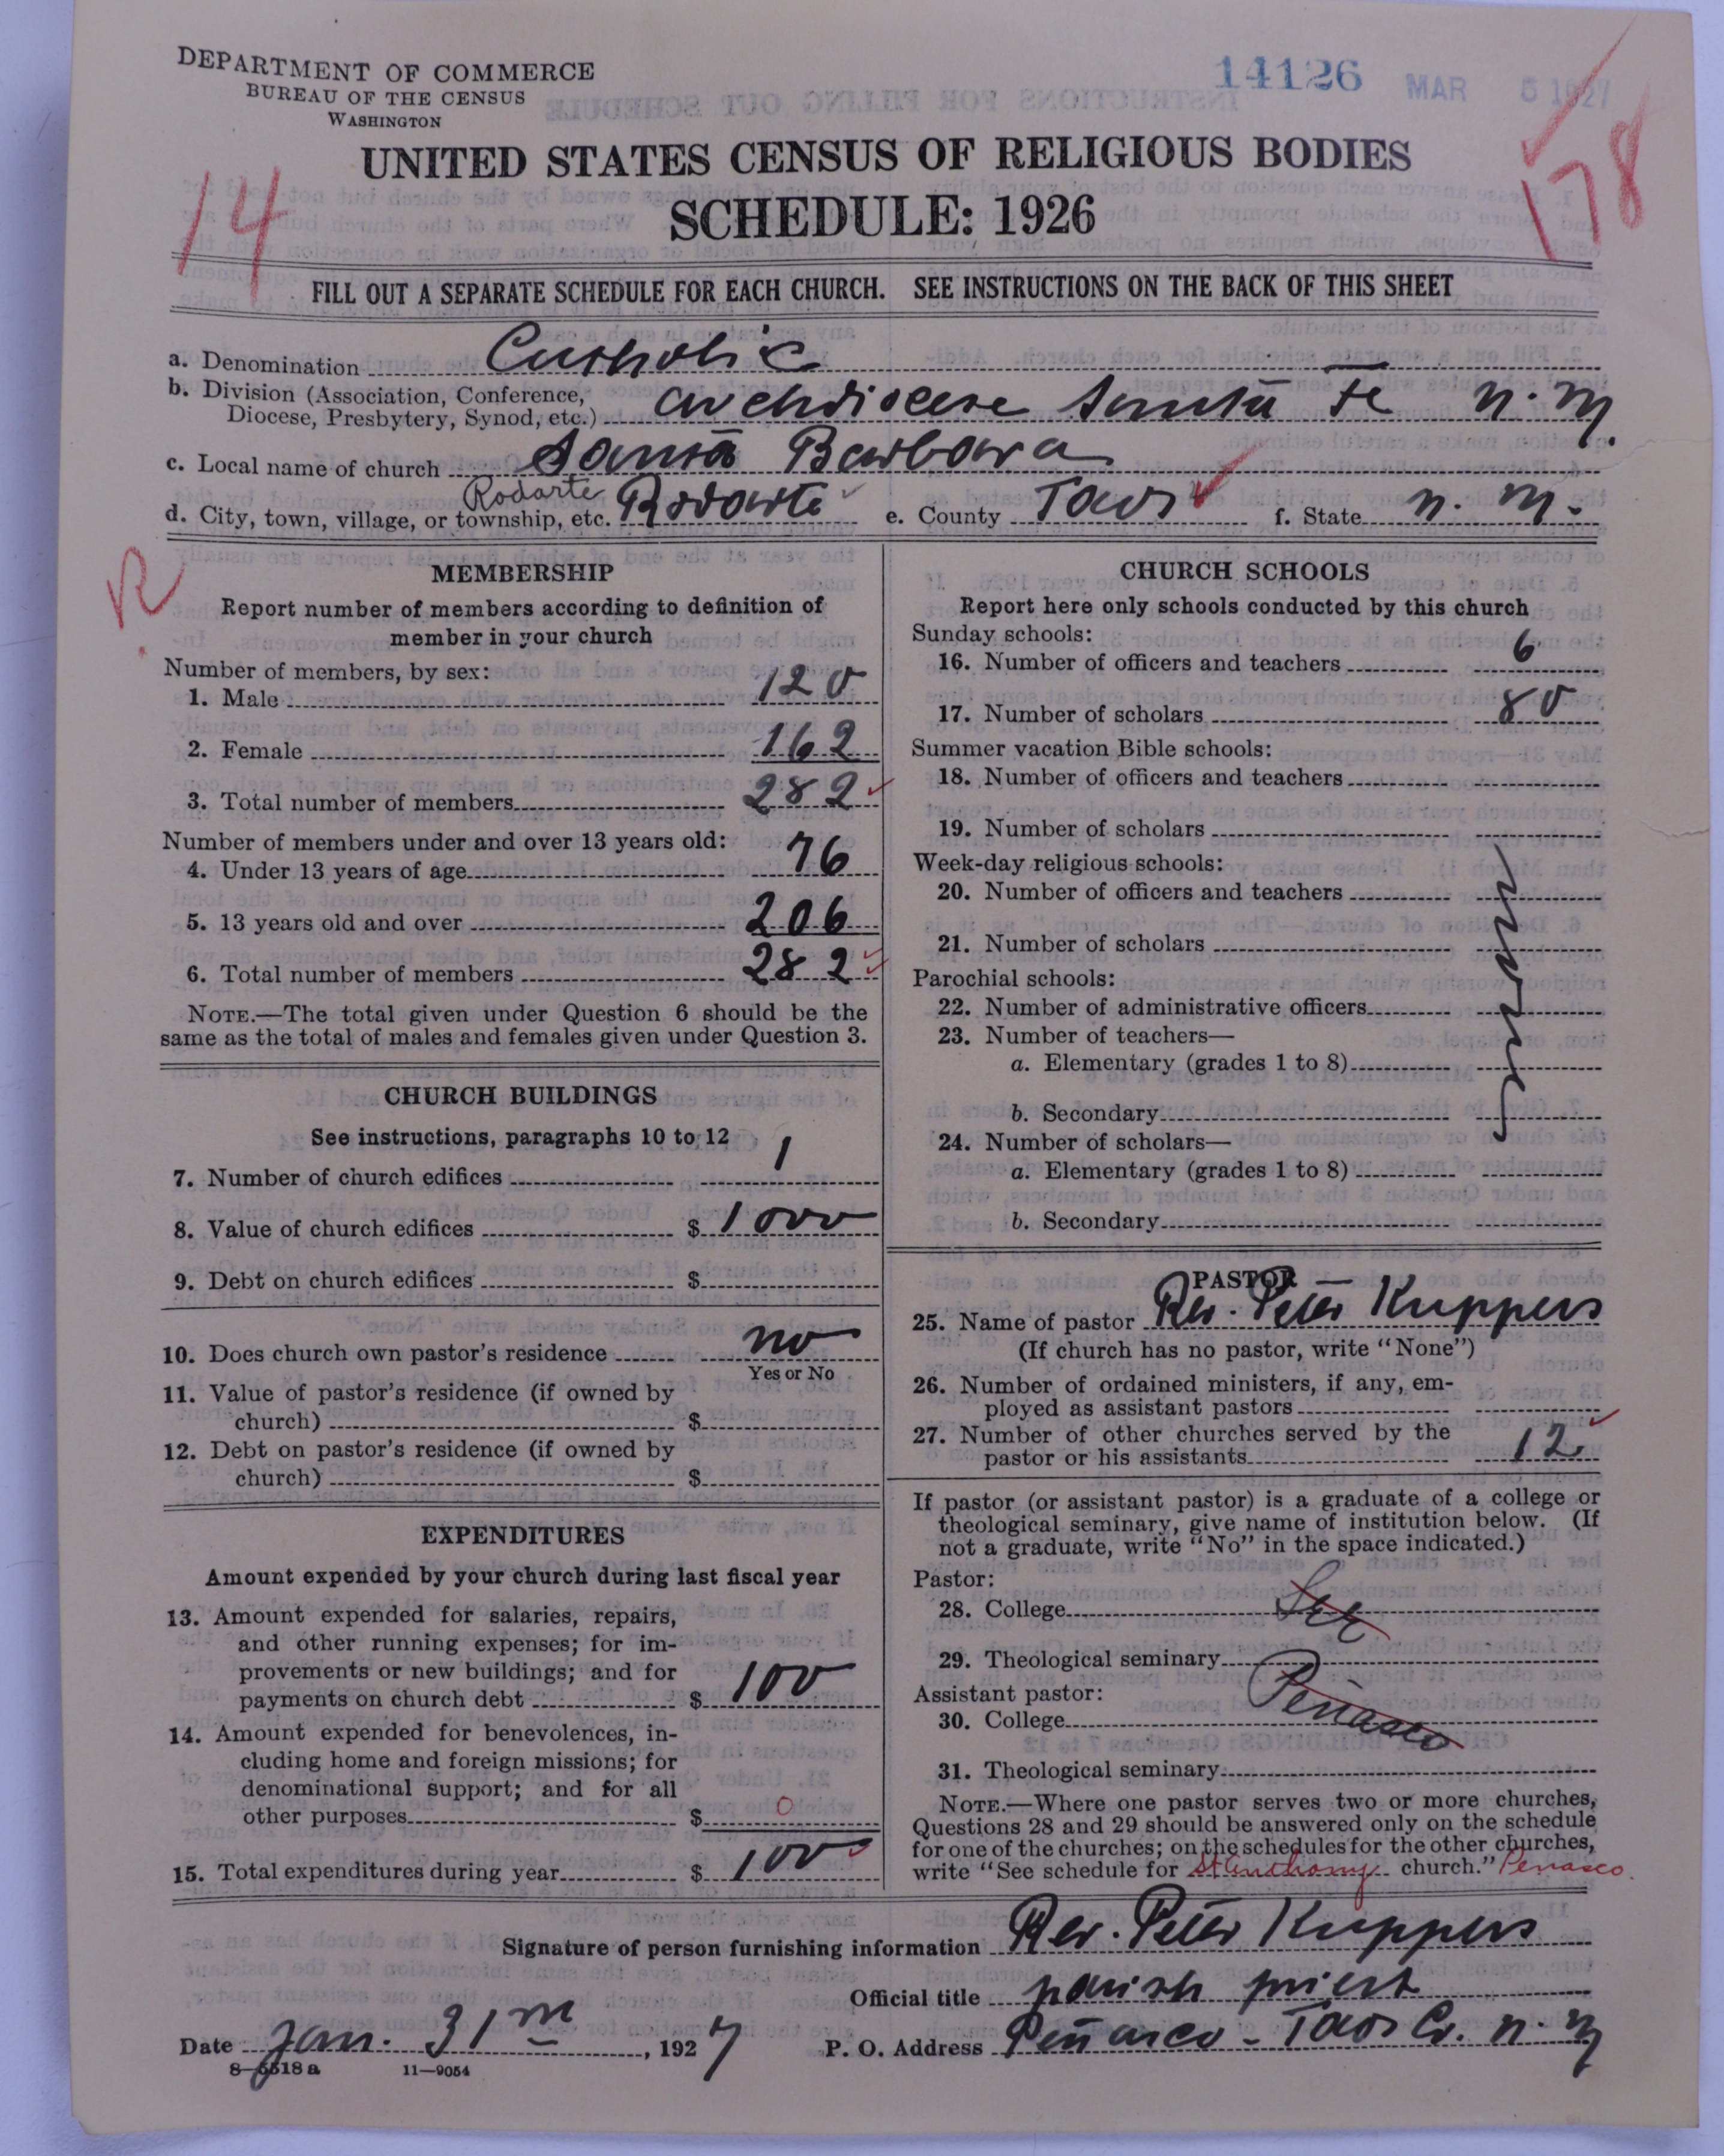 DEPARTMENT OF COMMERCE
BUREAU OF THE CENSUS
WASHINGTON
14126 MAR 5 1927
UNITED STATES CENSUS OF RELIGIOUS BODIES
SCHEDULE: 1926
14
178
FILL OUT A SEPARATE SCHEDULE FOR EACH CHURCH. SEE INSTRUCTIONS ON THE BACK OF THIS SHEET
a. Denomination Catholic
b. Division (Association, Conference,
Diocese, Presbytery, Synod, etc.) Archdiocese Santa Fe N. M.
c. Local name of church Santa Barbara
Rodarte
d. City, town, village, or township, etc. Rodarte e. County Taos f. State N. M.
R
MEMBERSHIP
Report number of members according to definition of
member in your church
Number of members, by sex:
1. Male 120
2. Female 162
3. Total number of members 282
Number of members under and over 13 years old:
4. Under 13 years of age 76
5. 13 years old and over 206
6. Total number of members 282
NOTE.—The total given under Question 6 should be the
same as the total of males and females given under Question 3.
CHURCH BUILDINGS
See instructions, paragraphs 10 to 12
7. Number of church edifices 1
8. Value of church edifices $ 1000
9. Debt on church edifices $
10. Does church own pastor's residence no
Yes or No
11. Value of pastor's residence (if owned by
church) $
12. Debt on pastor's residence (if owned by
church) $
EXPENDITURES
Amount expended by your church during last fiscal year
13. Amount expended for salaries, repairs,
and other running expenses; for im-
provements or new buildings; and for
payments on church debt $ 100
14. Amount expended for benevolences, in-
cluding home and foreign missions; for
denominational support; and for all
other purposes $ 0
15. Total expenditures during year $ 100
CHURCH SCHOOLS
Report here only schools conducted by this church
Sunday schools:
16. Number of officers and teachers 6
17. Number of scholars 80
Summer vacation Bible schools:
18. Number of officers and teachers
19. Number of scholars
Week-day religious schools:
20. Number of officers and teachers
21. Number of scholars
Parochial schools:
22. Number of administrative officers
23. Number of teachers—
a. Elementary (grades 1 to 8)
b. Secondary
24. Number of scholars—
a. Elementary (grades 1 to 8)
b. Secondary
PASTOR
25. Name of pastor Rev. Peter Kuppers
(If church has no pastor, write "None")
26. Number of ordained ministers, if any, em-
ployed as assistant pastors
27. Number of other churches served by the
pastor or his assistants 12
If pastor (or assistant pastor) is a graduate of a college or
theological seminary, give name of institution below. (If
not a graduate, write "No" in the space indicated.)
Pastor:
28. College See
29. Theological seminary
Assistant pastor: Peñasco
30. College
31. Theological seminary
NOTE.—Where one pastor serves two or more churches,
Questions 28 and 29 should be answered only on the schedule
for one of the churches; on the schedules for the other churches,
write "See schedule for St Anthony church." Penasco.
Signature of person furnishing information Rev. Peter Kuppers
Official title parish priest
Date Jan. 31st, 1927 P. O. Address Peñasco - Taos Co. N. M
8-5518 a 11-9054